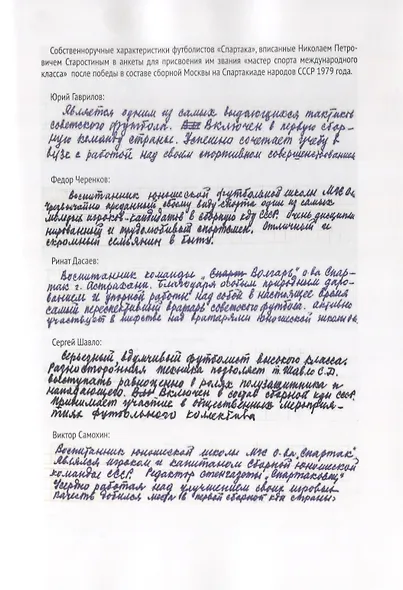 Собственноручные характеристики футболистов «Спартака», вписанные Николаем Петро-
вичем Старостиным в анкеты для присвоения им звания «мастер спорта международного
класса» после победы в составе сборной Москвы на Спартакиаде народов СССР 1979 года.
Юрий Гаврилов:
Является одним из самых выдающихся тактиков
советского футбола. Включен в первую сбор-
ную команду страны. Успешно сочетает учебу в
вузе с работой над своим спортивном совершенствовании
Федор Черенков:
Воспитанник юношеской футбольной школы МГС
Чрезвычайно преданный своему виду спорта один из самых
игроков-кандидатов в сборную кду СССР. Очень дисципли
нированный и трудолюбивый спортсмен. Отличный и
скромный семьянин в быту.
Ринат Дасаев:
Воспитанник команды „Волгарь" о-ва Спар-
так г. Астрахани. Благодаря особым природным даро-
ваниям и упорной работы над собой в настоящее время
самый перспективный вратарь советского футбола. Активно
участвует в шефстве над вратарями юношеской школы.
Сергей Шавло:
Серьезный вдумчивый футболист высокого класса.
Разносторонняя техника позволяет т. Шавло С.Д.
выступать равноценно в ролях полузащитника и
нападающего. Включен в состав сборной кдм СССР.
Принимает участие в общественных мероприя-
тиях футбольного коллектива
Виктор Самохин:
Воспитанник юношеской школы МГС О-ва „Спартак"
Являлся игроком и капитаном сборной юношеской
команды СССР. Редактор стенгазеты „Спартаковец"
Усердно работая над улучшением своих игровых
качеств добился места в первой сборной кдм страны